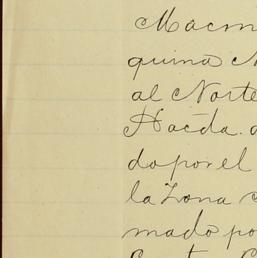 Macm
quina N
al Norte
Hacda.
do por el
la Zona
mado po